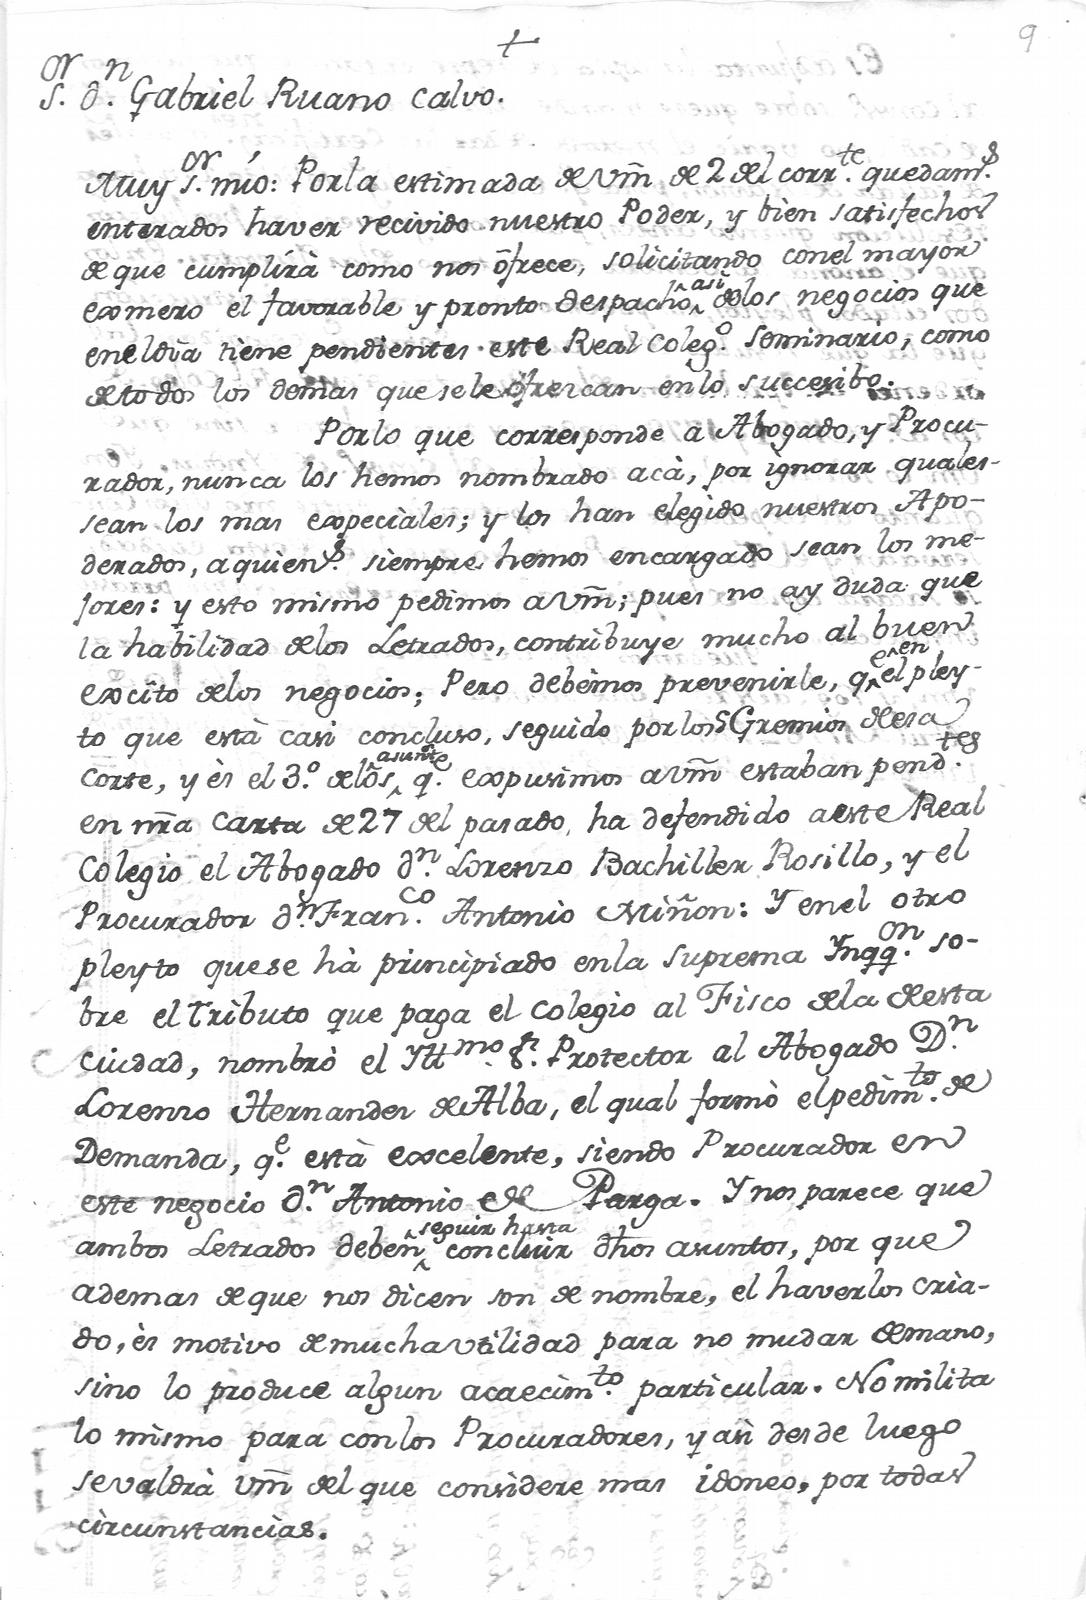 +
9
S.or D.n Gabriel Ruano Calvo.
Muy S.or mío: Porla estimada de Vm̃ de 2 del corr.te quedam.s
enterados haver recivido nuestro Poder, y bien satisfechos
de que cumplirà como nos ôfrece, solicitando conel mayor
exmero el favorable y pronto despacho, asi delos negocios que
eneldia tiene pendientes este Real Coleg.o Seminario, como
detodos los demas que sele ôfrezcan enlo succesibo.
Porlo que corresponde a Abogado, y Procu-
rador, nunca los hemos nombrado acà, por ignorar quales-
sean los mas expeciales; y los han elegido nuestros Apo-
derados, aquien.s siempre hemos encargado sean los me-
jores: y esto mismo pedimos aVm̃; pues no ay duda que
la habilidad delos Letrados, contribuye mucho al buen
excito delos negocios; Pero debèmos prevenirle, q.e en el pley-
to que està casi concluso, seguido por los 5 Gremios de esa
Corte, y ès el 3.o delos asuntos, q.e expusimos aVm̃ estaban pend.tes
en nr̃a carta de 27 del pasado, ha defendido aeste Real
Colegio el Abogado d.n Lorenzo Bachiller Rosillo, y el
Procurador d.n Fran.co Antonio Miñon: Y enel otro
pleyto quese hà principiado enla Suprema Ynqq.on so-
bre el Tributo que paga el Colegio al Fisco dela desta
Ciudad, nombrò el Yll̃mo S.r Protector al Abogado D.n
Lorenzo Hernandez deAlba, el qual formò elpedim.to de
Demanda, q.e està excelente, siendo Procurador en
este negocio d.n Antonio de Parga. Y nos parece que
ambos Letrados deben seguir hasta concluir dhos asuntos, por que
ademas deque nos dicen son de nombre, el haverlos cria-
do, ès motivo demucha vtilidad para no mudar demano,
sino lo produce algun acaecim.to particular. No milita
lo mismo para conlos Procuradores, y asi desde luego
sevaldrà Vm̃ del que considere mas idoneo, por todas
circunstancias.